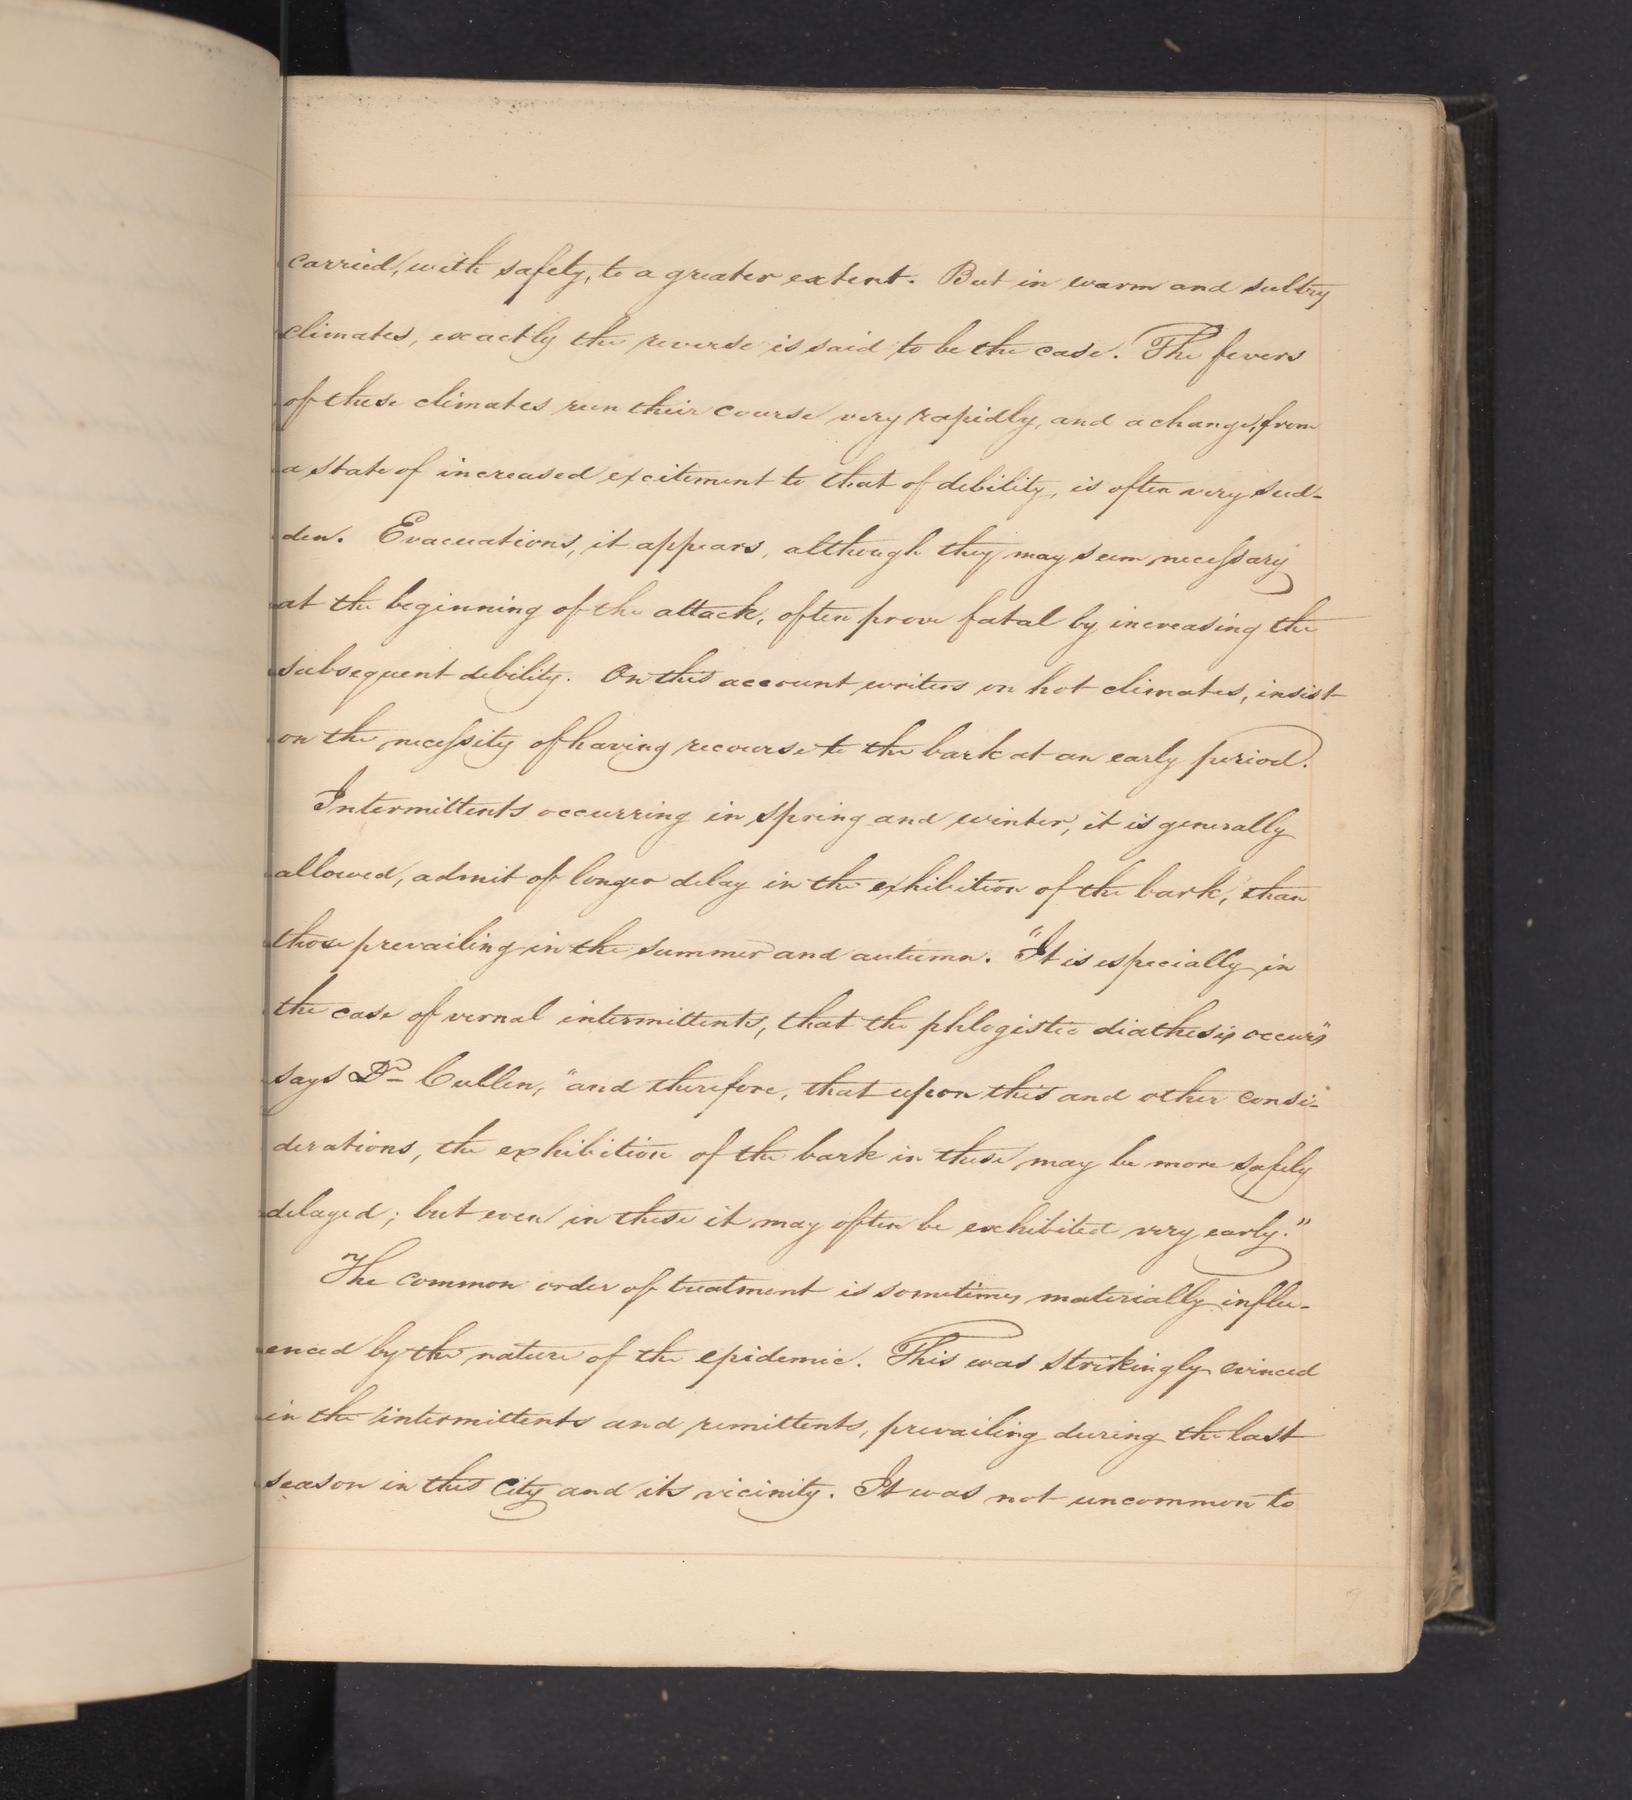 carried, with safety, to a greater extent. But in warm and sultry
climates, exactly the reverse is said to be the case. The fevers
of these climates run their course very rapidly, and a change, from
a state of increased excitement to that of debility, is often very sud-
den. Evacuations, it appears, although they may seem necessary
at the beginning of the attack, often prove fatal by increasing the
subsequent debility. On this account writers on hot climates, insist
on the necessity of having recourse to the bark at an early period.
Intermittents occurring in spring and winter, it is generally
allowed, admit of longer delay in the exhibition of the bark, than
those prevailing in the summer and autumn. "It is especially in
the case of vernal intermittents, that the phlogistic diathesis occurs"
says Dr Cullen, "and therefore, that upon this and other consi-
derations, the exhibition of the bark in these may be more safely
delayed; but even in these it may often be exhibited very early."
The common order of treatment is sometimes materially influ-
enced by the nature of the epidemic. This was strikingly evinced
in the intermittents and remittents, prevailing during the last
season in this City and its vicinity. It was not uncommon to